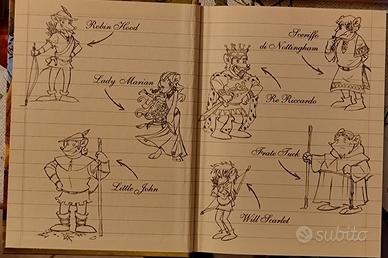 Robin Hood
Lady Marian
Little John
Sceriffo
di Nottingham
Re Riccardo
Frate Tuck
Will Scarlet
subito